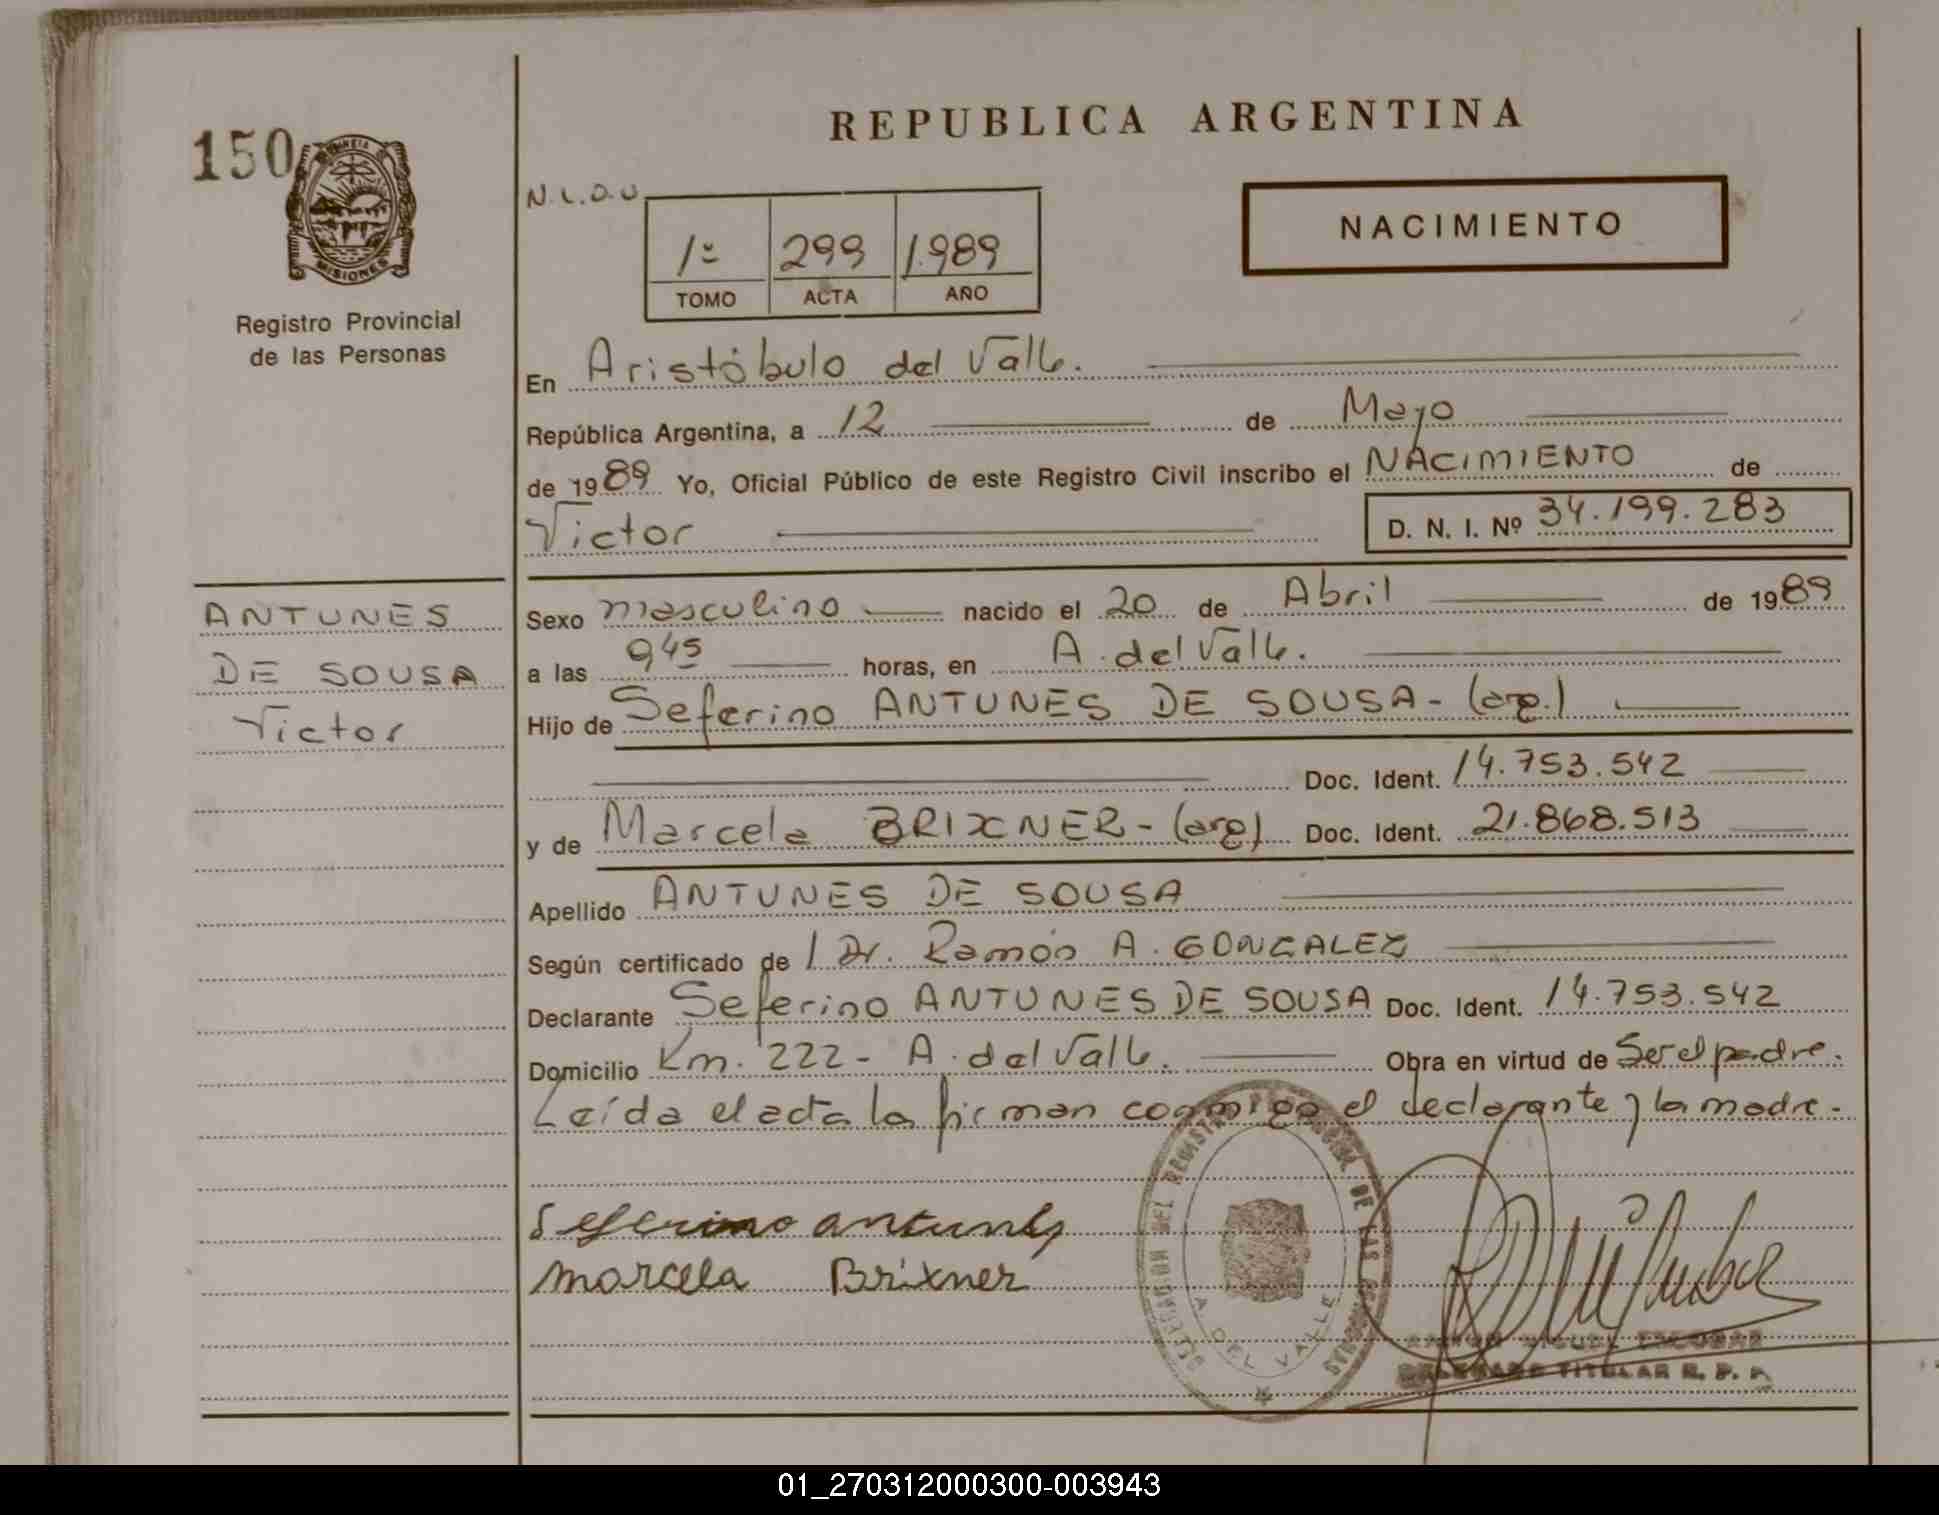 REPUBLICA ARGENTINA
150
PROVINCIA DE
MISIONES
Registro Provincial
de las Personas
N.L.O.U
1º 299 1.989
TOMO ACTA AÑO
NACIMIENTO
En Aristóbulo del Valle.
República Argentina, a 12 de Mayo
de 1989 Yo, Oficial Público de este Registro Civil inscribo el NACIMIENTO de
Victor D. N. I. Nº 34.199.283
ANTUNES
DE SOUSA
Victor
Sexo masculino nacido el 20 de Abril de 1989
a las 945 horas, en A. del Valle.
Hijo de Seferino ANTUNES DE SOUSA - (arg.)
Doc. Ident. 14.753.542
y de Marcela BRIXNER - (arg) Doc. Ident. 21.868.513
Apellido ANTUNES DE SOUSA
Según certificado de l Dr. Ramón A. GONZALEZ
Declarante Seferino ANTUNES DE SOUSA Doc. Ident. 14.753.542
Domicilio Km. 222 - A. del Valle. Obra en virtud de Ser el padre.
Leída el acta la firman conmigo el declarante y la madre.
Seferino antunes
marcela Brixner
DELEGACION DEL REGISTRO PROVINCIAL DE LAS PERSONAS
A. DEL VALLE
RAMON MIGUEL ESCOBAR
DELEGADO TITULAR R. P. P.
01_270312000300-003943